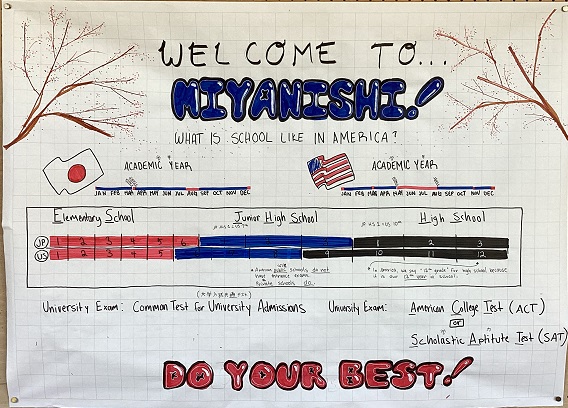 WELCOME TO...
MIYANISHI!
WHAT IS SCHOOL LIKE IN AMERICA?
ACADEMIC YEAR
JAN FEB MAR APR MAY JUN JUL AUG SEP OCT NOV DEC
ACADEMIC YEAR
JAN FEB MAR APR MAY JUN JUL AUG SEP OCT NOV DEC
Elementary School
Junior High School
High School
JP 1 2 3 4 5 6 1 2 3
US 1 2 3 4 5 9 10 11 12
American public schools do not
have entrance exams.
Private schools do.
* In America, we say "12th grade" for high school because
it is our 12th year in school!
University Exam: Common Test for University Admissions
University Exam: American College Test (ACT)
or
Scholastic Aptitude Test (SAT)
DO YOUR BEST!